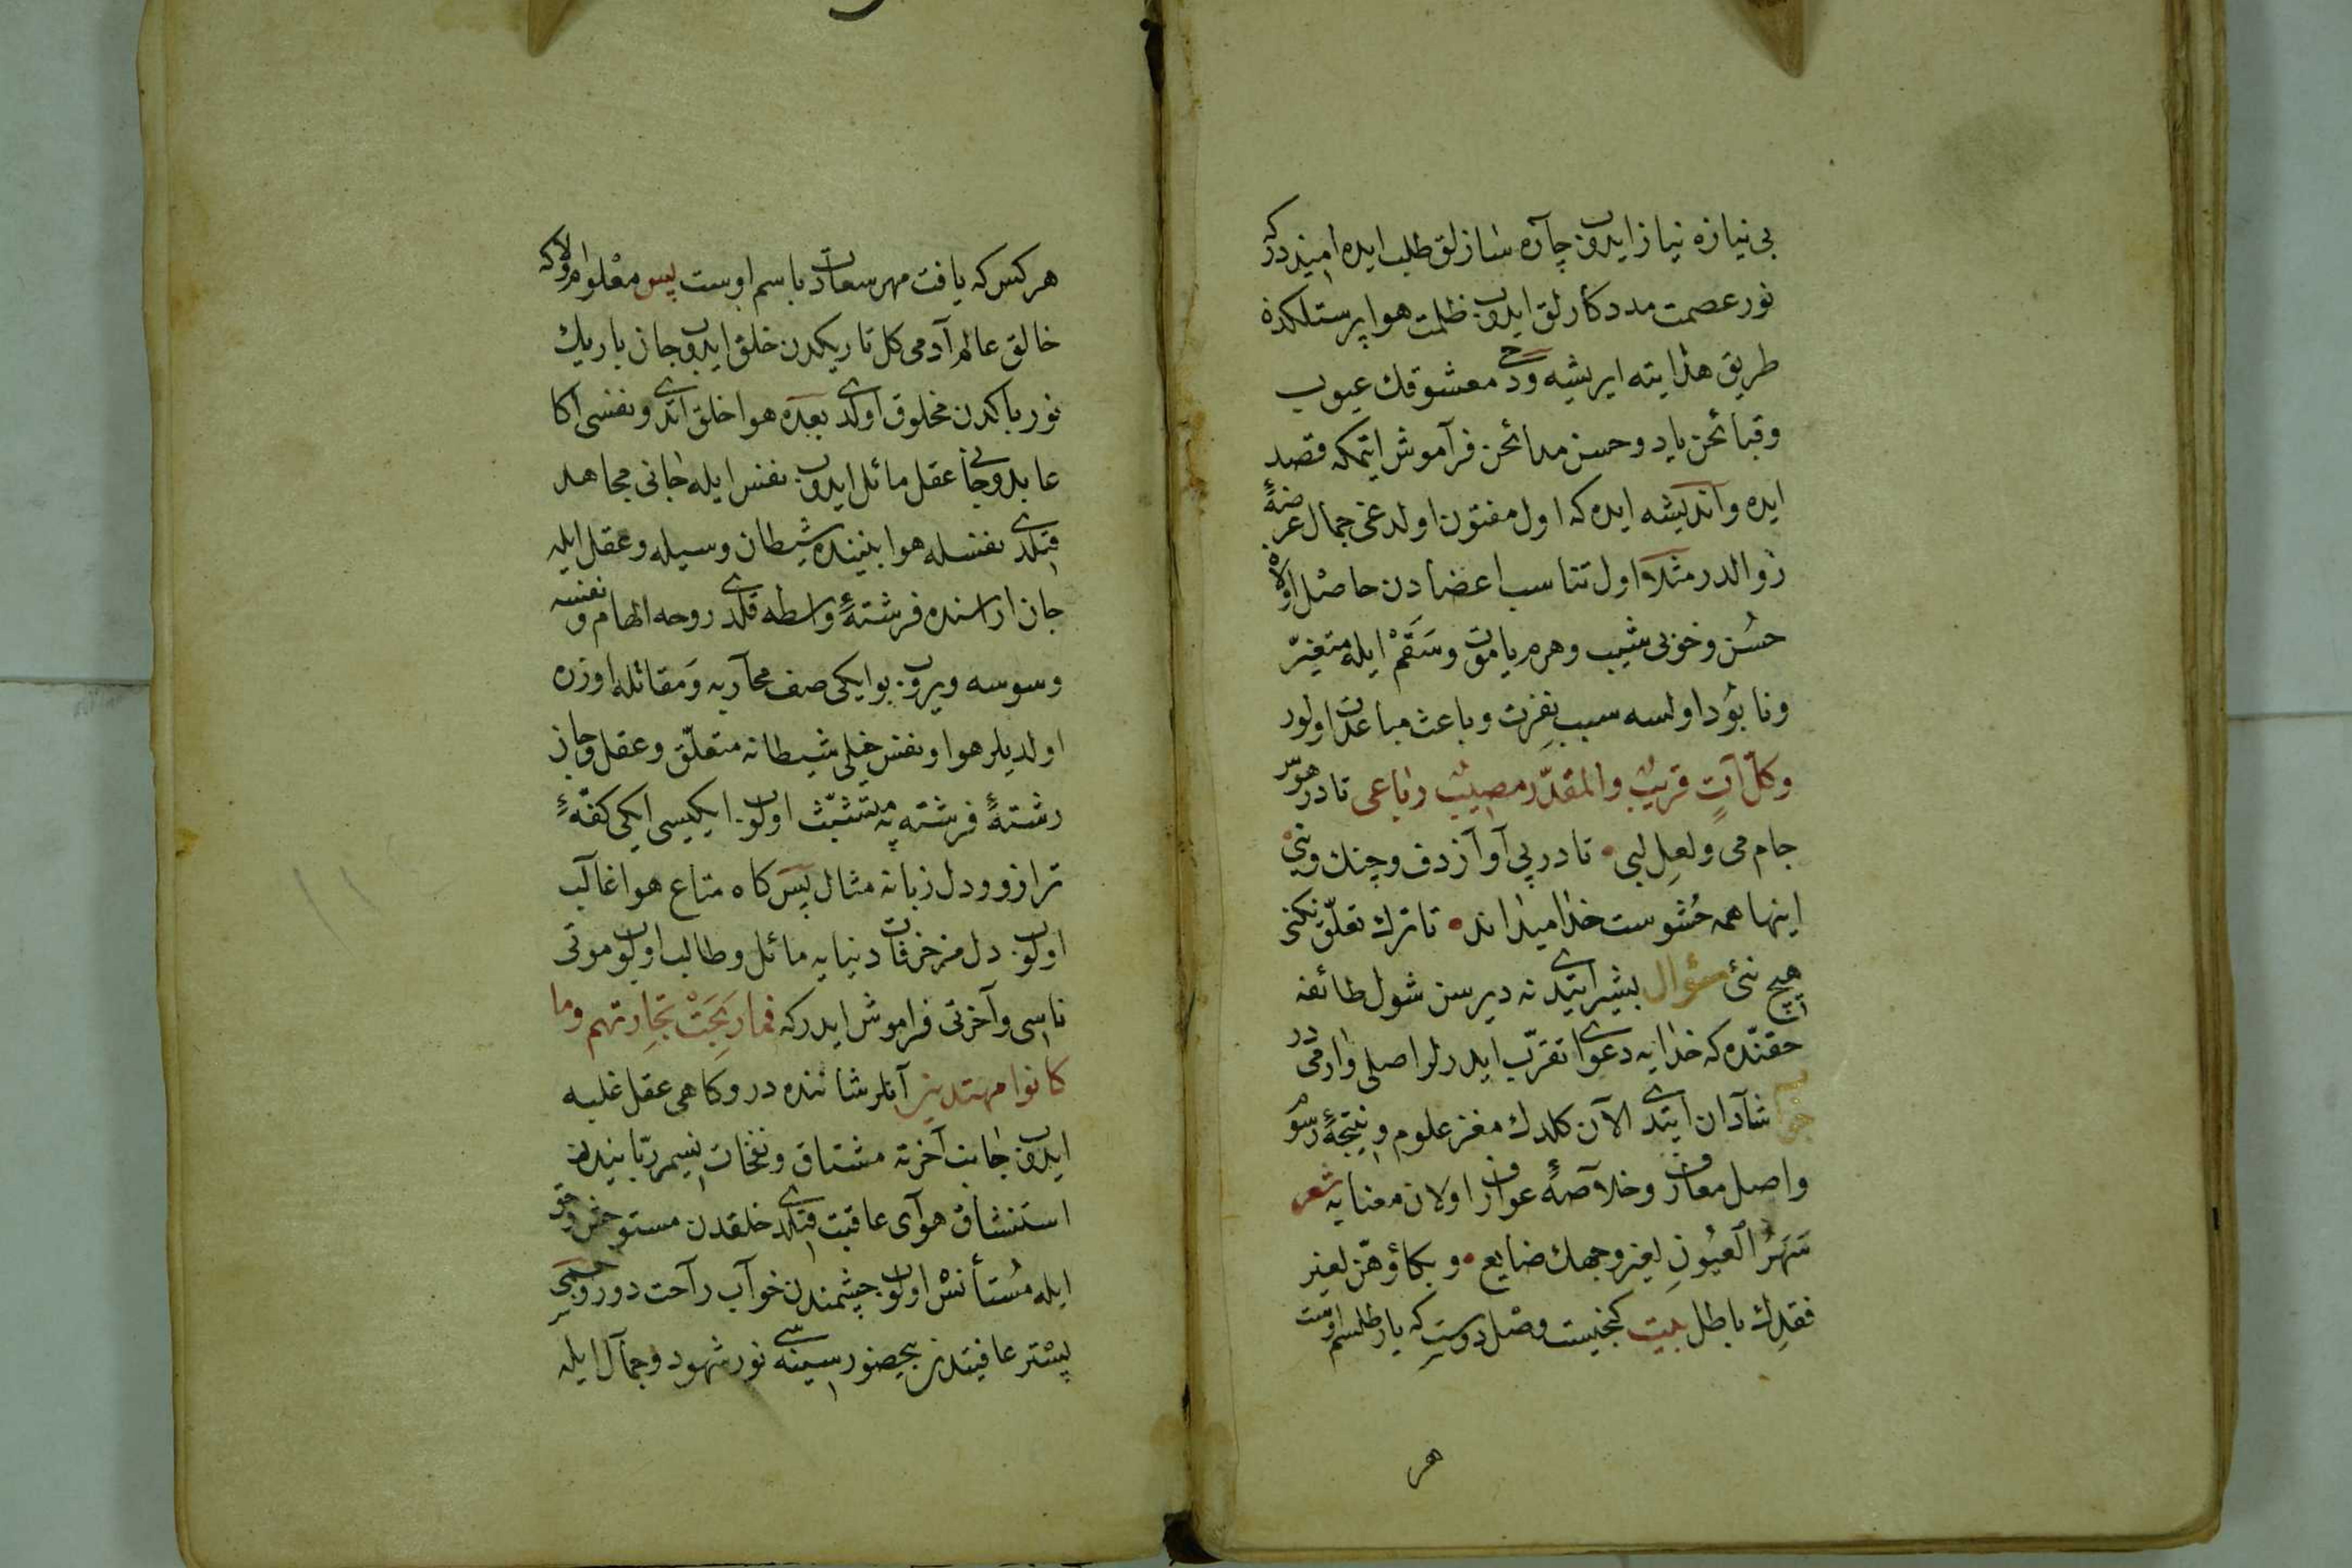 بی نیازه نیاز ایدوب چاره سازلق طلب ایده امیددرکه
نور عصمت مددکارلق ایدوب ظلمت هواپرستلکدن
طریق هدایته ایریشه ودخی معشوقك عیوب
وقبائحن یاد وحسن مدائحن فرآموش ایتمکه قصد
ایده واندیشه ایده که اول مفتون اولدغی جمال عرضۀ
زوالدر مثلا اول تناسب اعضادن حاصل اولان
حسن وخوبی شیب وهرم یا موت وسقم ایله متغیّر
ونابود اولسه سبب نفرت وباعث مباعدت اولور
وکلّ آتٍ قریب والمقدّر مصیب رباعی تا در هوس
جام می ولعل لبی تا در پی آواز دف وچنك ونیی
اینها همه حشوست خدا میداند تا ترك تعلّق نکنی
هیچ نئی سؤال بشیر ایتدی نه دیرسن شول طائفه
حقنده که خدایه دعوای تقرّب ایدرلر اصلی وارمیدر
جواب شادان ایتدی الآن کلدك مغز علوم ونتیجۀ رسوم
واصل معارف وخلاصۀ عوارف اولان معنایه شعر
سَهَرُ العُیُونِ لِغیر وجهك ضایع وبکاؤهنّ لغیر
فقدِك باطل بیت کنجیست وصل دوست که یار طلسم اوست
هر
هرکس که یافت مهر سعادت باسم اوست پس معلوم اولاکه
خالق عالم آدمی کل تاریکدن خلق ایدوب جان باریك
نور پاکدن مخلوق اولدی بعده هوا خلق اتدی ونفسی اکا
عابد وجانی عقله مائل ایدوب نفس ایله جانی مجاهد
قیلدی نفسله هوا بیننده شیطان وسیله وعقل ایله
جان اراسنده فرشتۀ واسطه قلدی روحه الهام ونفسه
وسوسه ویروب بو ایکی صف محاربه ومقاتله اوزره
اولدیلر هوا ونفس خیلی شیطانه متعلّق وعقل وجان
رشتۀ فرشته یه متشبّث اولوب ایکیسی ایکی کفّۀ
ترازو ودل زبانه مثال پس کاه متاع هوا غالب
اولوب دل مزخرفات دنیایه مائل وطالب اولوب موتی
ناسی وآخرتی فراموش ایدرکه فما رَبِحَتْ تجارتهم وما
کانوا مهتدین آنلر شاننده در وکاهی عقل غلبه
ایدوب جانب آخرته مشتاق ونفحات نسیم ربانیدن
استنشاق هوای عاقبت قیلدی خلقدن مستوحش وحق
ایله مُستأنس اولوب چشمندن خواب راحت دور وجسمی
بستر عافیتدن بیحضور سینه سی نور شهود وجمال ایله